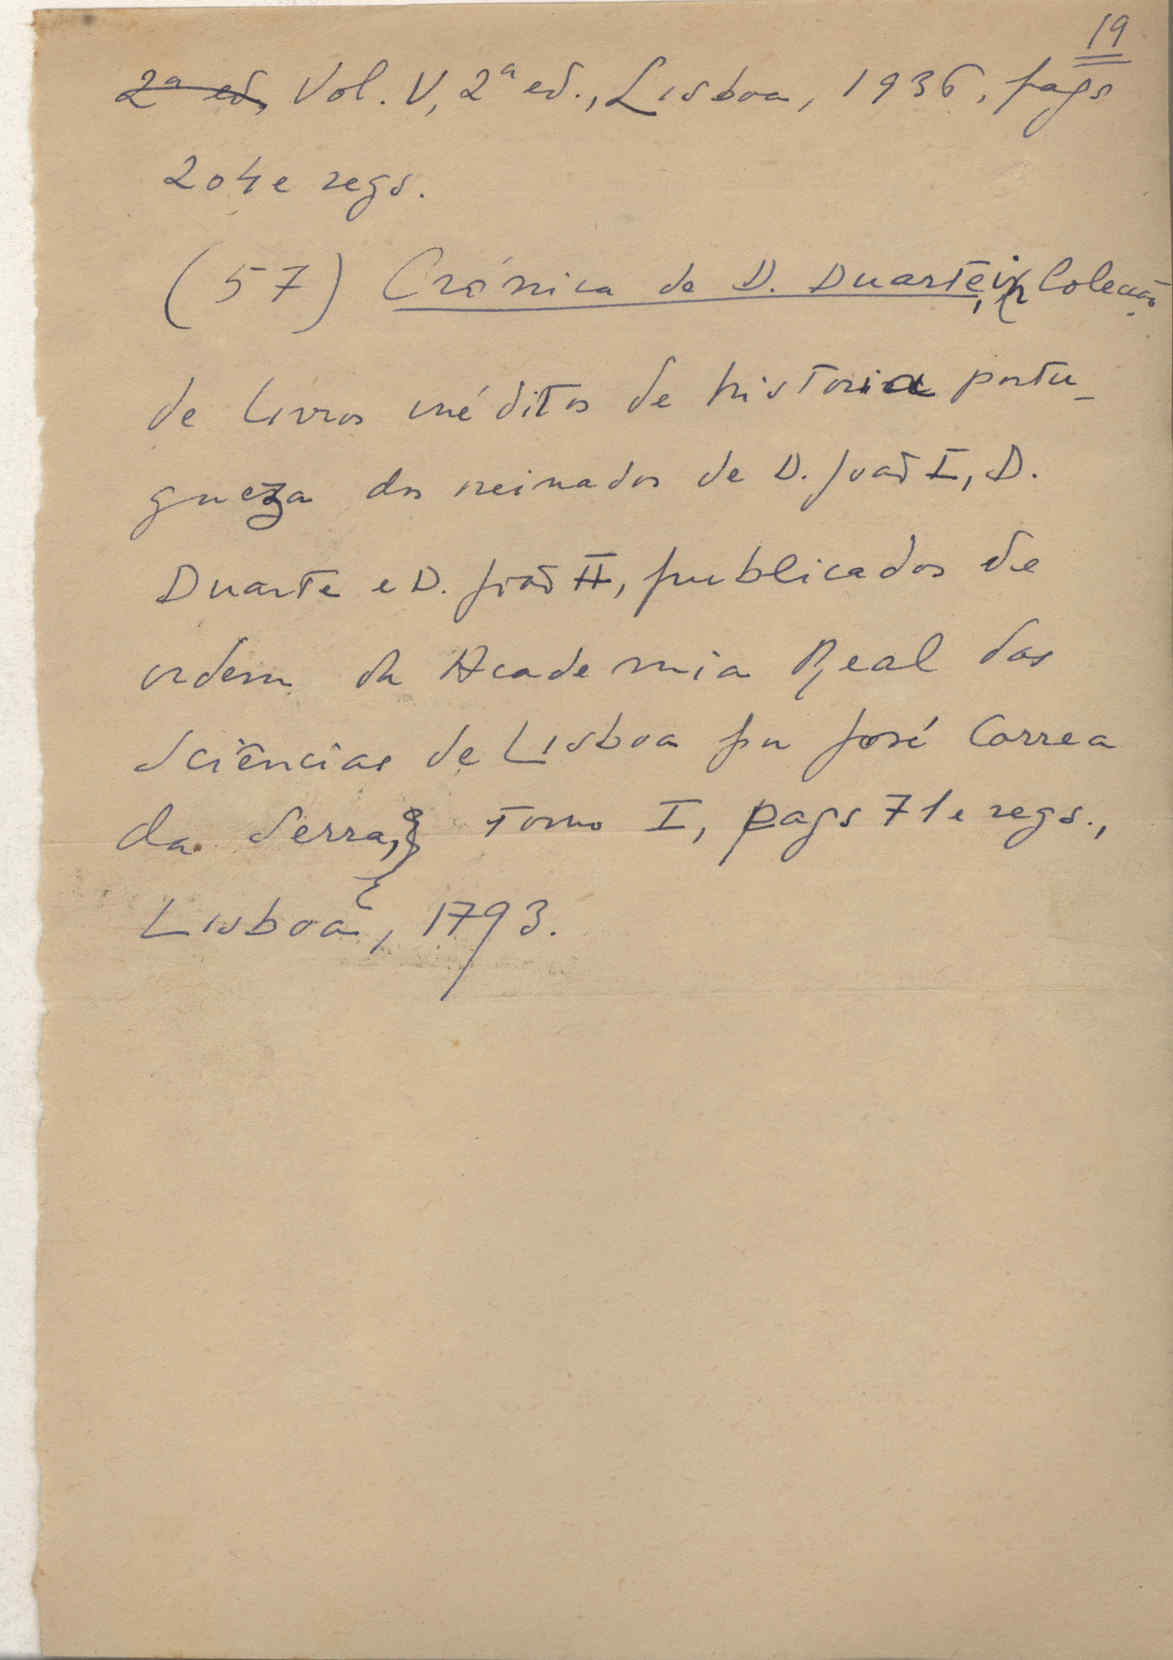 19
2ª ed, Vol. V, 2ª ed., Lisboa, 1936, pags
204 e segs.
(57) Crónica de D. Duarte, in Colecção
de livros inéditos de historia portu-
gueza dos reinados de D. João I, D.
Duarte e D. João II, publicados de
ordem da Academia Real das
Sciências de Lisboa por José Correa
da Serra, Tomo I, pags 71 e segs.,
Lisboa, 1793.